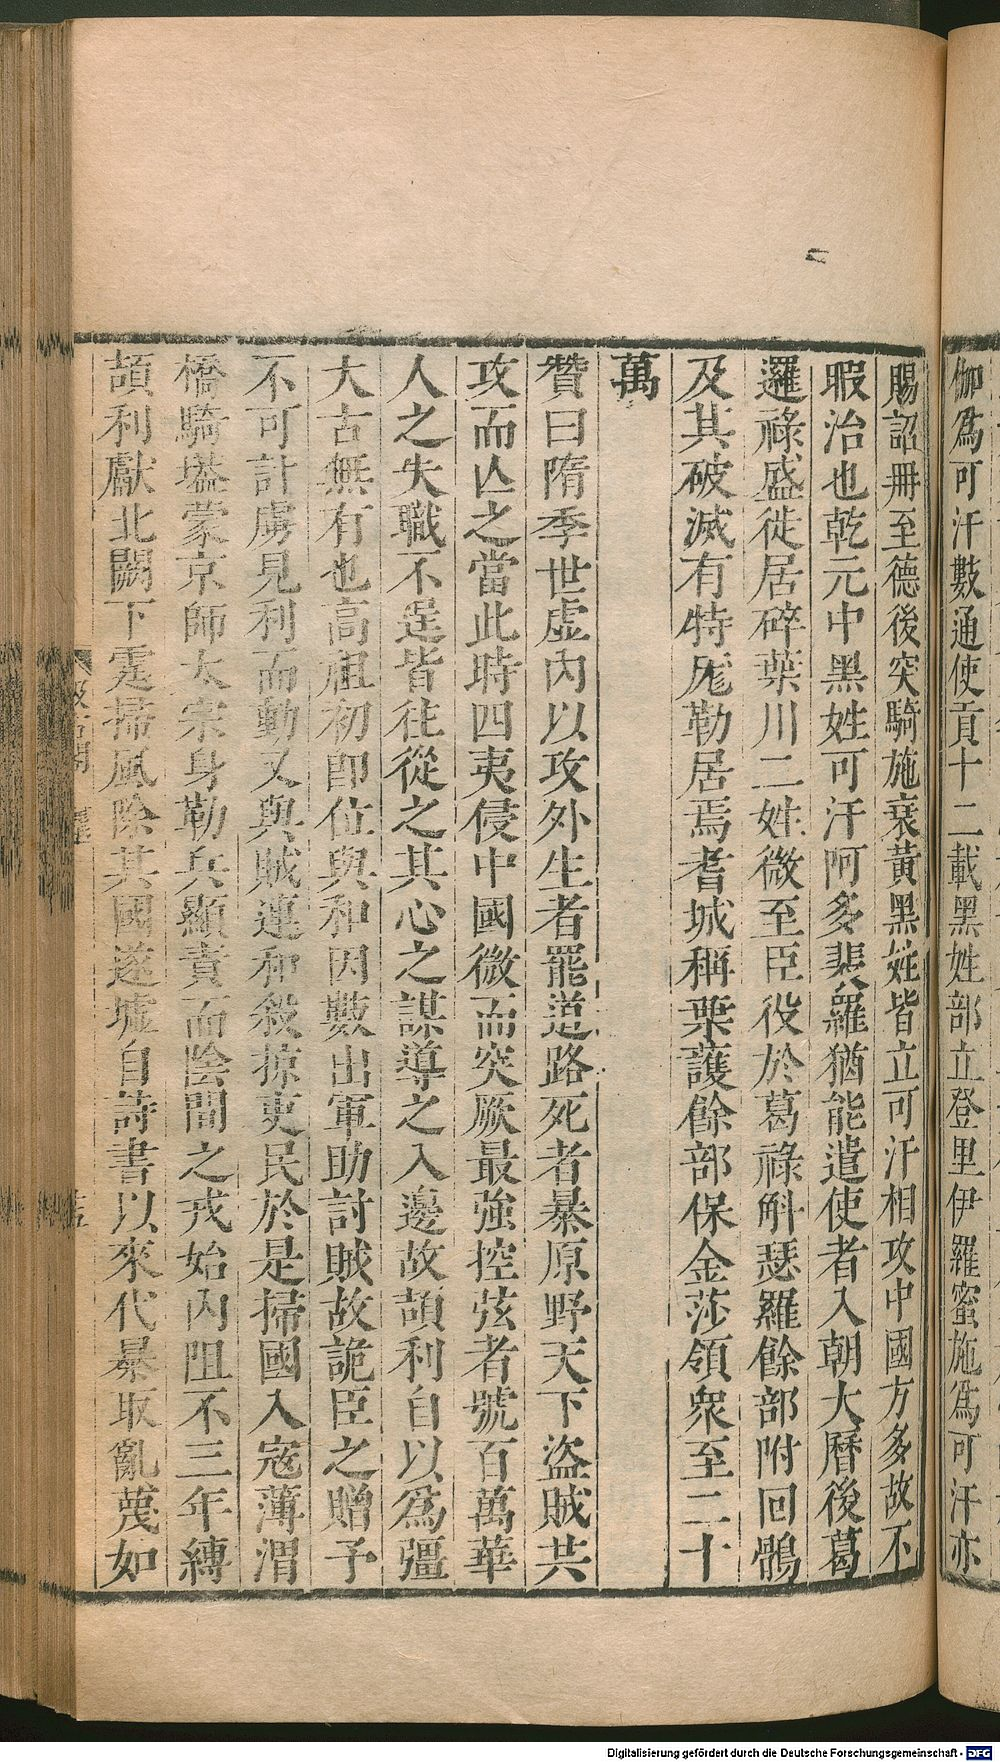 伽爲可汗數通使貢十二載黑姓部立登里伊羅蜜施爲可汗亦
賜詔冊至德後突騎施衰黃黑姓皆立可汗相攻中國方多故不
暇治也乾元中黑姓可汗阿多裴羅猶能遣使者入朝大曆後葛
邏祿盛徙居碎葉川二姓微至臣役於葛祿斛瑟羅餘部附回鶻
及其破滅有特厖勒居焉耆城稱葉護餘部保金莎領衆至二十
萬
贊曰隋季世虛內以攻外生者罷道路死者暴原野天下盜賊共
攻而亾之當此時四夷侵中國微而突厥最強控弦者號百萬華
人之失職不逞皆往從之其心之謀導之入邊故頡利自以爲彊
大古無有也高祖初即位與和因數出軍助討賊故詭臣之贈予
不可計虜見利而動又與賊連和殺掠吏民於是掃國入寇薄渭
橋騎壒蒙京師太宗身勒兵顯責而陰間之戎始內阻不三年縛
頡利獻北闕下霆掃風除其國遂墟自詩書以來代暴取亂蔑如
汲古閣
Digitalisierung gefördert durch die Deutsche Forschungsgemeinschaft - DFG